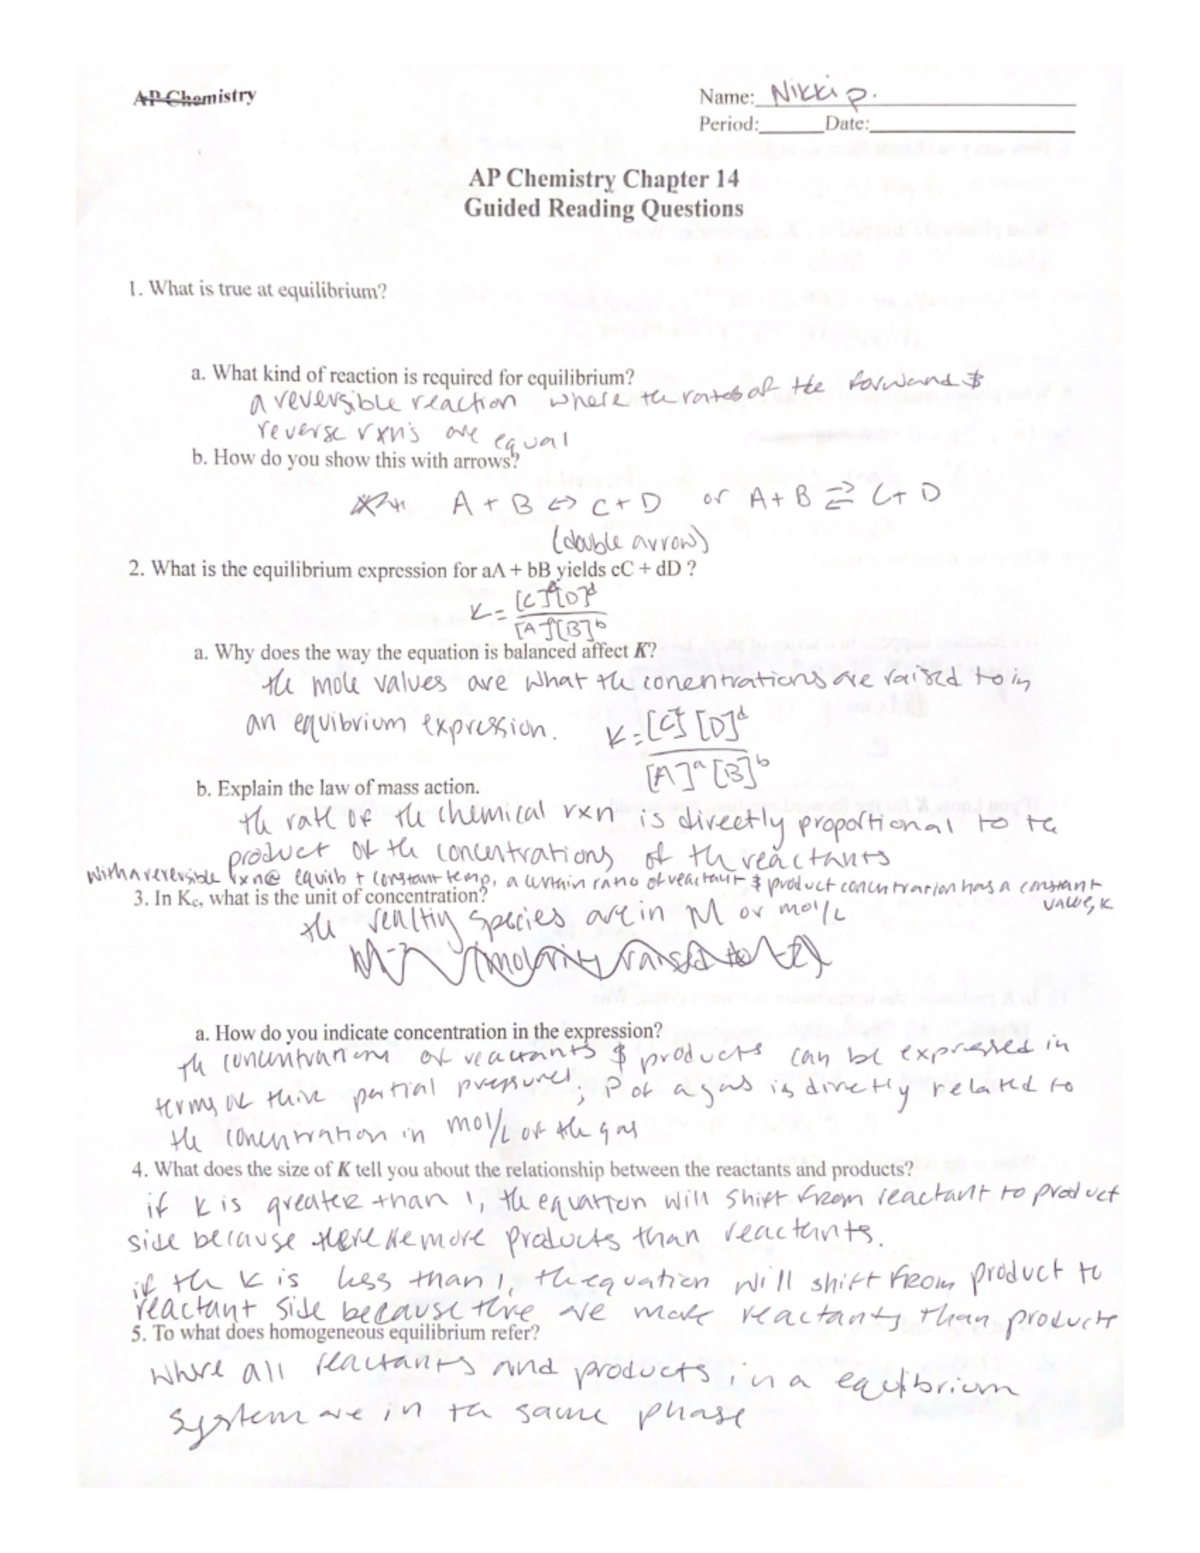 AP Chemistry
Name: Nikki p.
Period:______Date:
AP Chemistry Chapter 14
Guided Reading Questions
1. What is true at equilibrium?
a. What kind of reaction is required for equilibrium?
a reversible reaction where the rates of the forward &
reverse rxn's are equal
b. How do you show this with arrows?
A + B ⇔ C + D or A + B ⇄ C + D
(double arrow)
2. What is the equilibrium expression for aA + bB yields cC + dD ?
K = [C]^c[D]^d / [A]^a[B]^b
a. Why does the way the equation is balanced affect K?
the mole values are what the conentrations are raised to in
an equibrium expression. K = [C]^c [D]^d / [A]^a [B]^b
b. Explain the law of mass action.
the rate of the chemical rxn is directly proportional to the
product of the concentrations of the reactants
With a reversible rxn @ equilib + constant temp, a certain ratio of reactant & product concentration has a constant
value, K
3. In Kc, what is the unit of concentration?
the species are in M or mol/L
a. How do you indicate concentration in the expression?
the concentrations of reactants & products can be expressed in
terms of their partial pressures; P of a gas is directly related to
the concentration in mol/L of the gas
4. What does the size of K tell you about the relationship between the reactants and products?
if K is greater than 1, the equation will shift from reactant to product
side because there are more products than reactants.
if the K is less than 1, the equation will shift from product to
reactant side because there are more reactants than products
5. To what does homogeneous equilibrium refer?
Where all reactants and products in a equilibrium
system are in the same phase